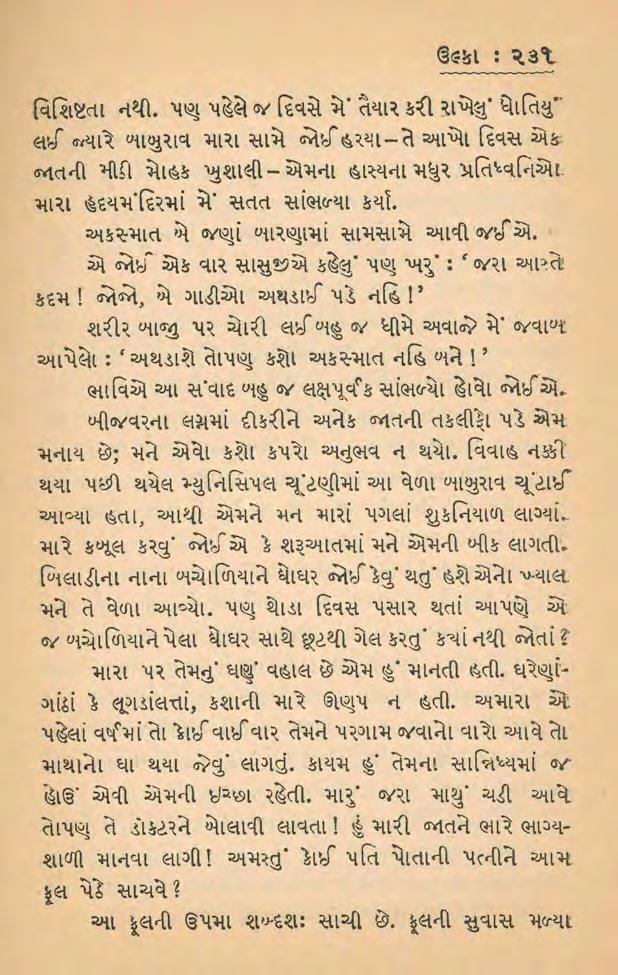 ઉલ્કા : ૨૩૧
વિશિષ્ટતા નથી. પણ પહેલે જ દિવસે મેં તૈયાર કરી રાખેલું ધોતિયું
લઈ જ્યારે બાબુરાવ મારા સામે જોઈ હસ્યા–તે આખો દિવસ એક
જાતની મીઠી મોહક ખુશાલી–એમના હાસ્યના મધુર પ્રતિધ્વનિઓ
મારા હૃદયમંદિરમાં મેં સતત સાંભળ્યા કર્યા.
અકસ્માત બે જણાં બારણામાં સામસામે આવી જઈએ.
એ જોઈ એક વાર સાસુજીએ કહેલું પણ ખરું : ‘જરા આસ્તે
કદમ ! જોજો, બે ગાડીઓ અથડાઈ પડે નહિ !’
શરીર બાજુ પર ચોરી લઈ બહુ જ ધીમે અવાજે મેં જવાબ
આપેલો : ‘અથડાશે તોપણ કશો અકસ્માત નહિ બને !’
ભાવિએ આ સંવાદ બહુ જ લક્ષપૂર્વક સાંભળ્યો હોવો જોઈએ.
બીજવરના લગ્નમાં દીકરીને અનેક જાતની તકલીફો પડે એમ
મનાય છે; મને એવો કશો કપરો અનુભવ ન થયો. વિવાહ નક્કી
થયા પછી થયેલ મ્યુનિસિપલ ચૂંટણીમાં આ વેળા બાબુરાવ ચૂંટાઈ
આવ્યા હતા, આથી એમને મન મારાં પગલાં શુકનિયાળ લાગ્યાં.
મારે કબૂલ કરવું જોઈએ કે શરૂઆતમાં મને એમની બીક લાગતી.
બિલાડીના નાના બચોળિયાને ઘોઘર જોઈ કેવું થતું હશે એનો ખ્યાલ
મને તે વેળા આવ્યો. પણ થોડા દિવસ પસાર થતાં આપણે એ
જ બચોળિયાને પેલા ઘોઘર સાથે છૂટથી ગેલ કરતું ક્યાં નથી જોતાં ?
મારા પર તેમનું ઘણું વહાલ છે એમ હું માનતી હતી. ઘરેણાં-
ગાંઠાં કે લૂગડાંલત્તાં, કશાની મારે ઊણપ ન હતી. અમારા એ
પહેલાં વર્ષમાં તો કોઈ વાઈ વાર તેમને પરગામ જવાનો વારો આવે તો
માથાનો ઘા થયા જેવું લાગતું. કાયમ હું તેમના સાન્નિધ્યમાં જ
હોઉં એવી એમની ઇચ્છા રહેતી. મારું જરા માથું ચડી આવે
તોપણ તે ડૉક્ટરને બોલાવી લાવતા ! હું મારી જાતને ભારે ભાગ્ય-
શાળી માનવા લાગી ! અમસ્તું કોઈ પતિ પોતાની પત્નીને આમ
ફૂલ પેઠે સાચવે ?
આ ફૂલની ઉપમા શબ્દશઃ સાચી છે. ફૂલની સુવાસ મળ્યા